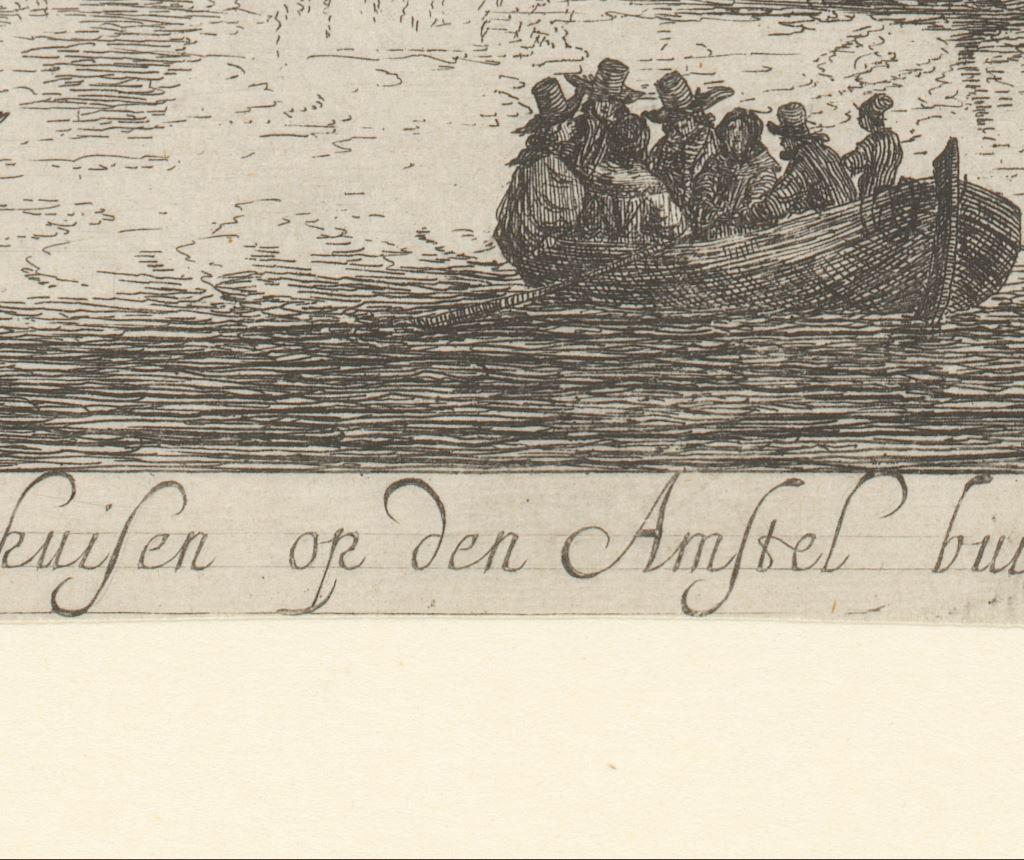 huiſen op den Amſtel bui